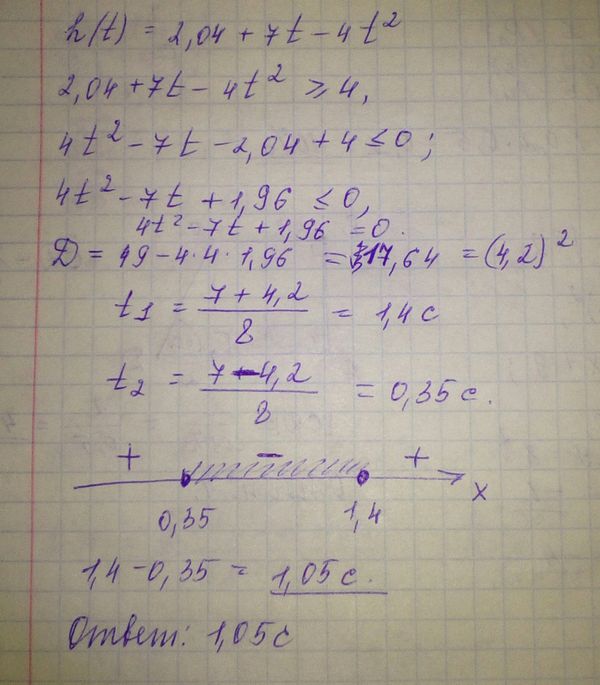 h(t) = 2,04 + 7t - 4t²
2,04 + 7t - 4t² ≥ 4,
4t² - 7t - 2,04 + 4 ≤ 0;
4t² - 7t + 1,96 ≤ 0,
4t² - 7t + 1,96 = 0.
D = 49 - 4·4·1,96 = 17,64 = (4,2)²
t₁ = (7 + 4,2)/8 = 1,4 с
t₂ = (7 - 4,2)/8 = 0,35 с.
+ - +
0,35 1,4 x
1,4 - 0,35 = 1,05 с.
Ответ: 1,05 с